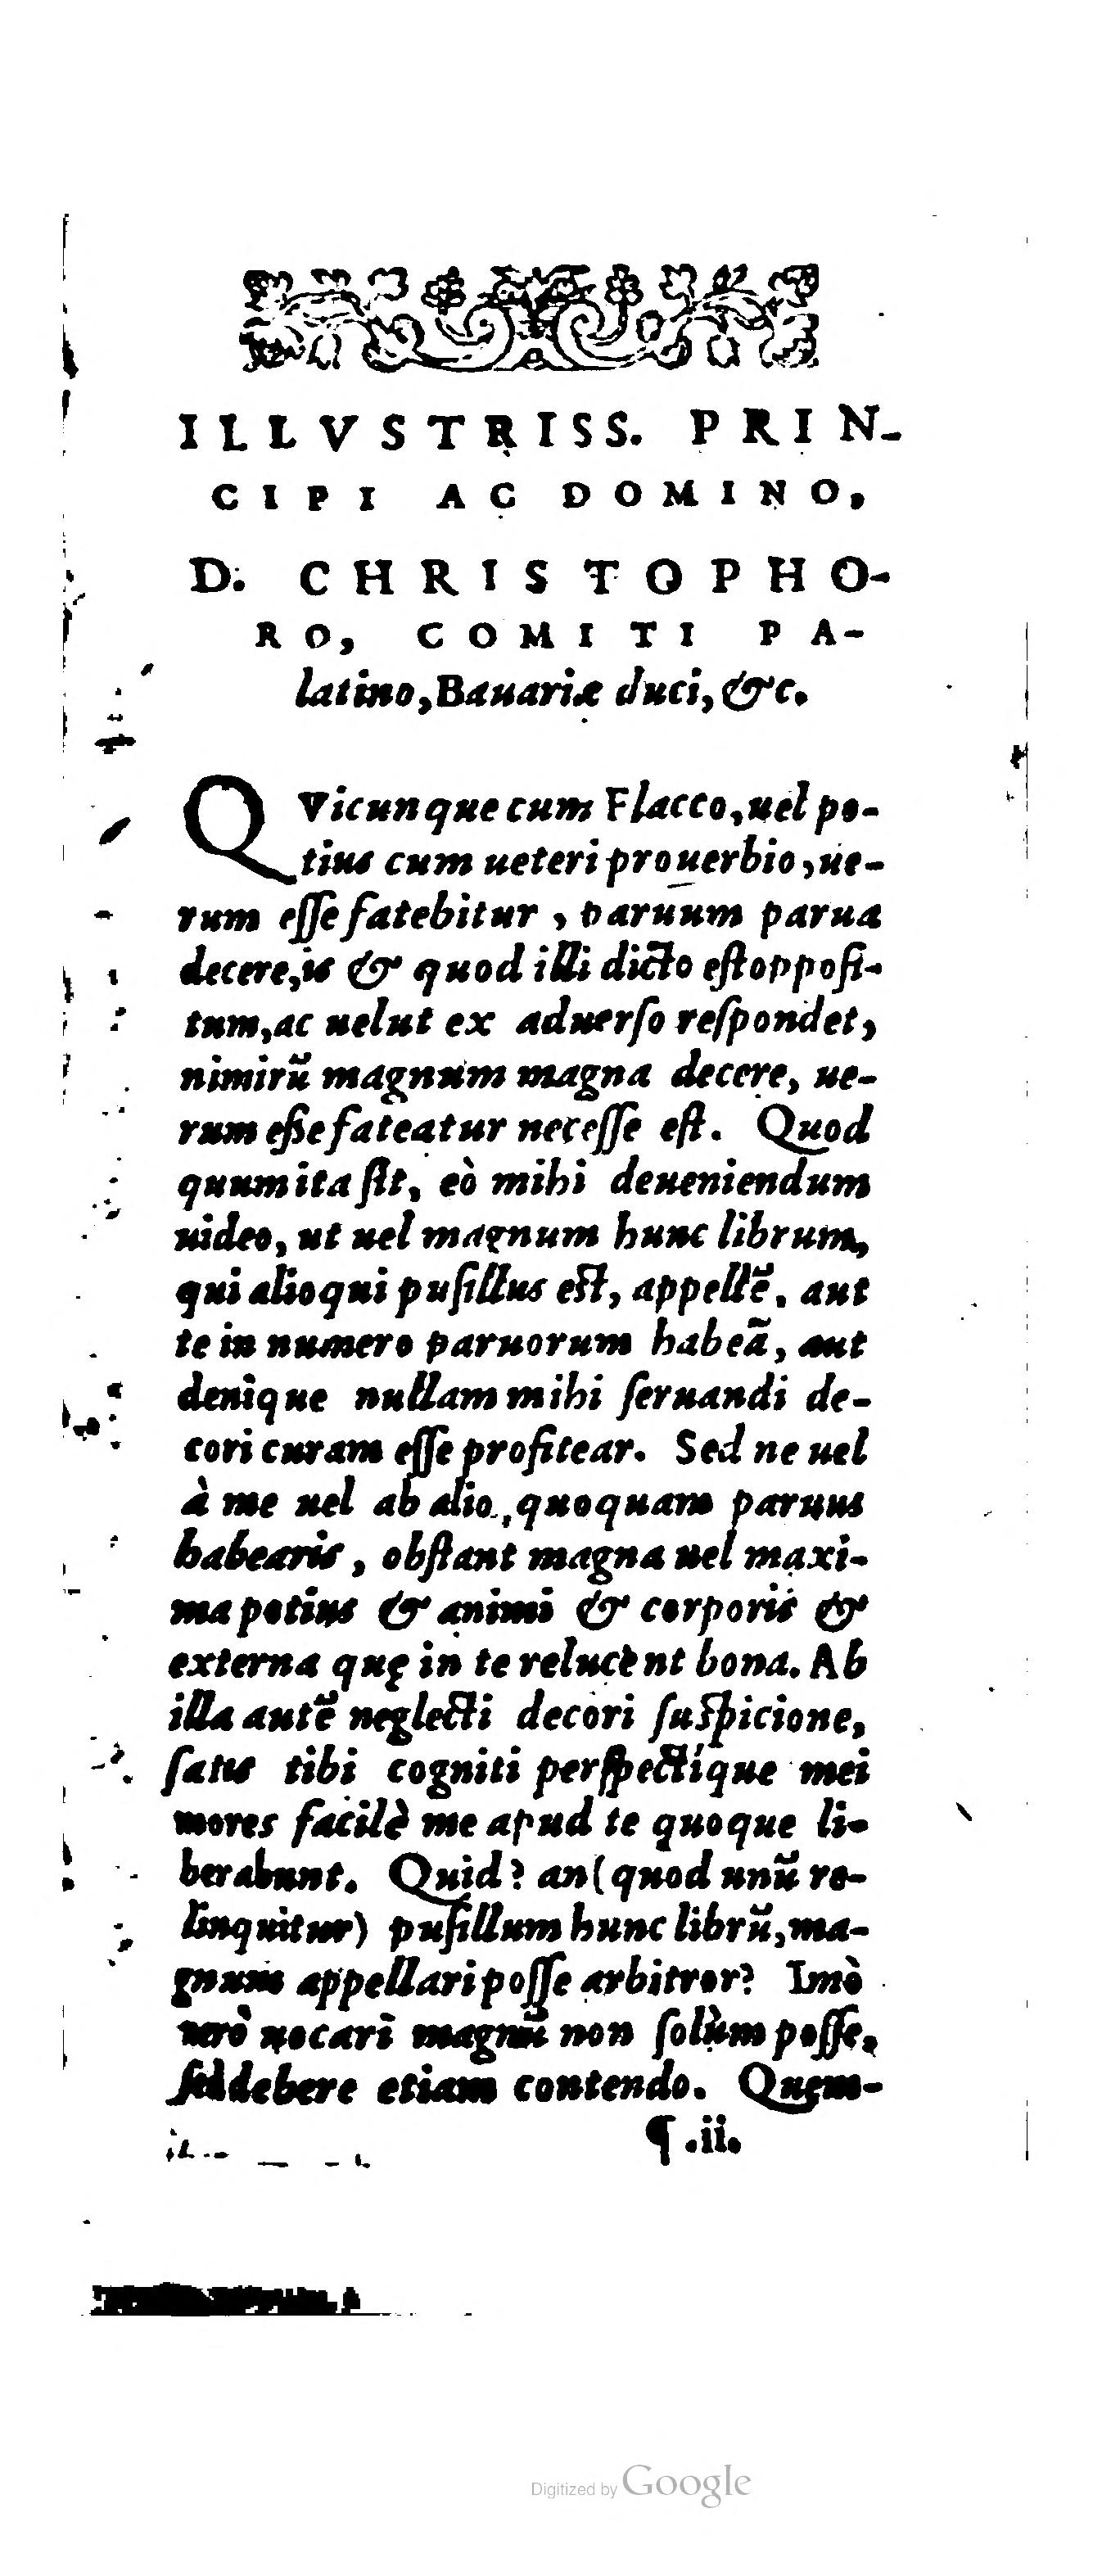 ILLVSTRISS. PRIN-
CIPI AC DOMINO,
D. CHRISTOPHO-
RO, COMITI PA-
latino, Bauariæ duci, &c.
QVicunque cum Flacco, uel po-
tius cum ueteri prouerbio, ue-
rum eſſe fatebitur, paruum parua
decere, is & quod illi dicto eſt oppoſi-
tum, ac uelut ex aduerſo reſpondet,
nimirũ magnum magna decere, ue-
rum eße fateatur neceſſe eſt. Quod
quum ita ſit, eò mihi deueniendum
uideo, ut uel magnum hunc librum,
qui alioqui puſillus eſt, appellẽ, aut
te in numero paruorum habeã, aut
denique nullam mihi ſeruandi de-
cori curam eſſe profitear. Sed ne uel
à me uel ab alio quoquam paruus
habearis, obſtant magna uel maxi-
ma potius & animi & corporis &
externa quę in te relucent bona. Ab
illa autẽ neglecti decori ſuſpicione,
ſatis tibi cogniti perſpectíque mei
mores facilè me apud te quoque li-
berabunt. Quid? an (quod unũ re-
linquitur) puſillum hunc librũ, ma-
gnum appellari poſſe arbitror? Imò
uerò uocari magnũ non ſolùm poſſe,
ſed debere etiam contendo. Quem-
¶.ii.
Digitized by Google